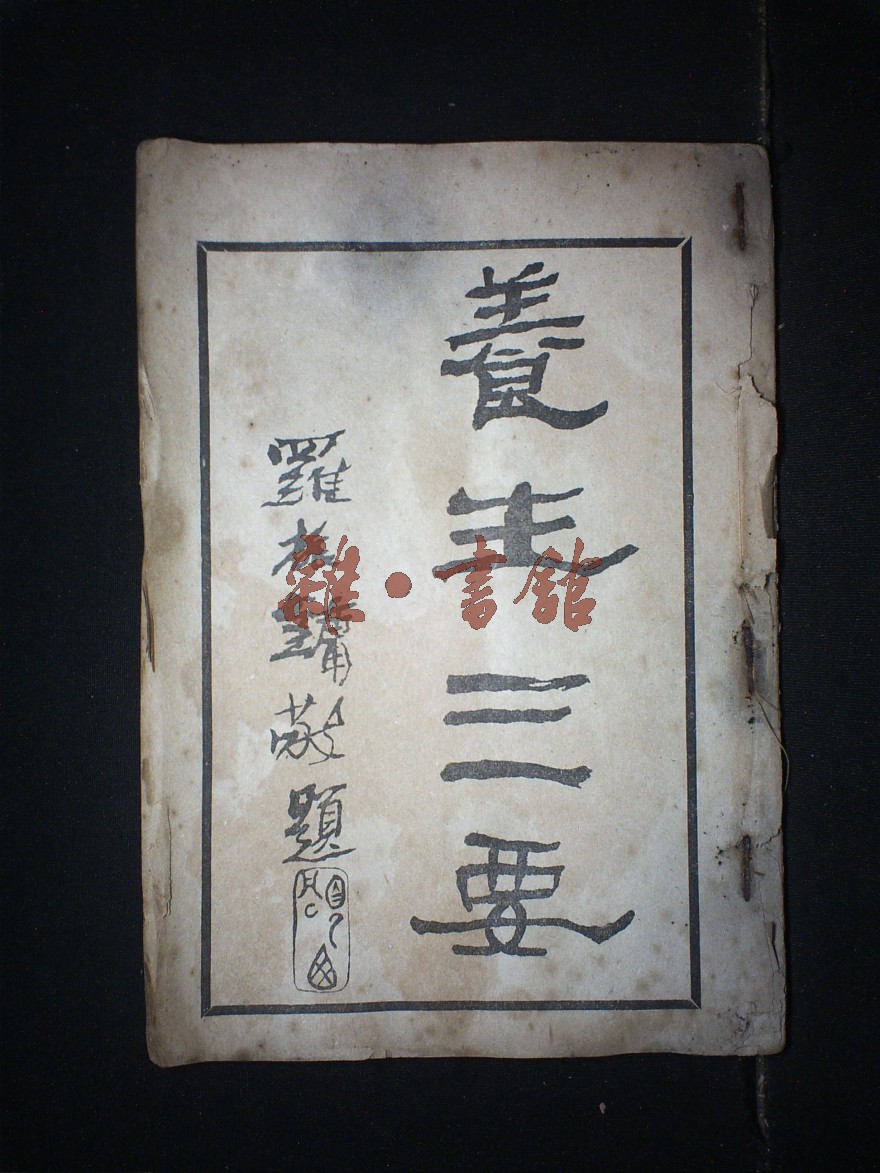 養生三要
羅鏞敬題
雜・書館